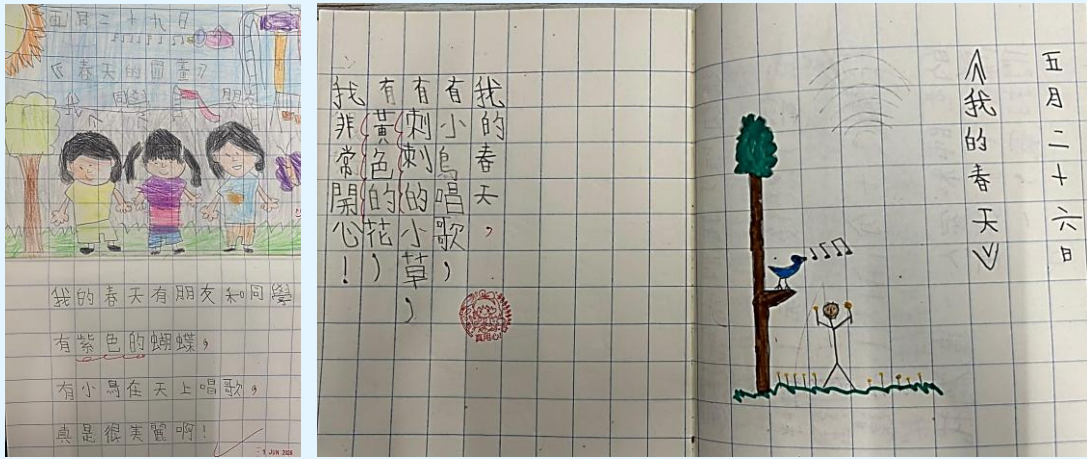 五月二十九日
《春天的圖畫》
我 同學 朋友
我的春天有朋友和同學
有紫色的蝴蝶，
有小鳥在天上唱歌，
真是很美麗啊！
1 JUN 2020
五月二十六日
《我的春天》
我的春天，
有小鳥唱歌，
有刺刺的小草，
有黃色的花，
我非常開心！
真用心!